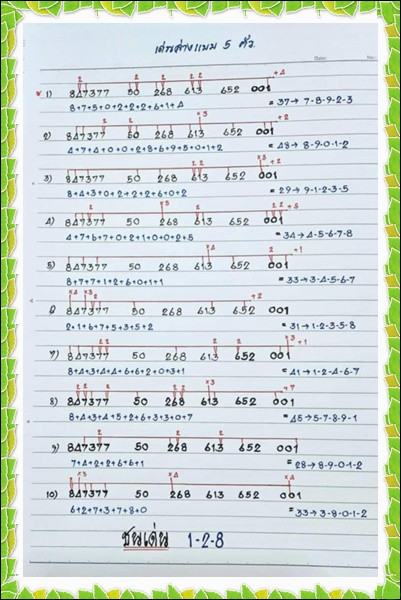 เด่นล่างแบบ 5 ตัว
1) 847377 50 268 613 652 001 +4
8+7+5+0+2+2+2+6+1+4 = 37→ 7-8-9-2-3
2) 847377 50 268 613 652 001 +2
4+7+4+0+0+2+8+6+9+5+0+1+2 = 48→ 8-9-0-1-2
3) 847377 50 268 613 652 001 +2
8+4+3+0+2+2+2+6+0+2 = 29→ 9-1-2-3-5
4) 847377 50 268 613 652 001 +5
4+7+6+7+0+2+1+0+0+2+5 = 34→ 4-5-6-7-8
5) 847377 50 268 613 652 001 +1
8+7+7+1+2+6+0+1+1 = 33→ 3-4-5-6-7
847377 50 268 613 652 001
2+1+6+7+5+3+5+2 = 31→ 1-2-3-5-8
7) 847377 50 268 613 652 001 +1
8+4+3+4+4+6+6+2+0+3+1 = 41→ 1-2-4-6-7
8) 847377 50 268 613 652 001 +7
8+4+3+4+5+2+6+3+3+0+7 = 45→ 5-7-8-9-1
9) 847377 50 268 613 652 001
7+4+2+2+6+6+1 = 28→ 8-9-0-1-2
10) 847377 50 268 613 652 001
6+2+7+3+7+8+0 = 33→ 3-8-0-1-2
ชนเด่น 1-2-8